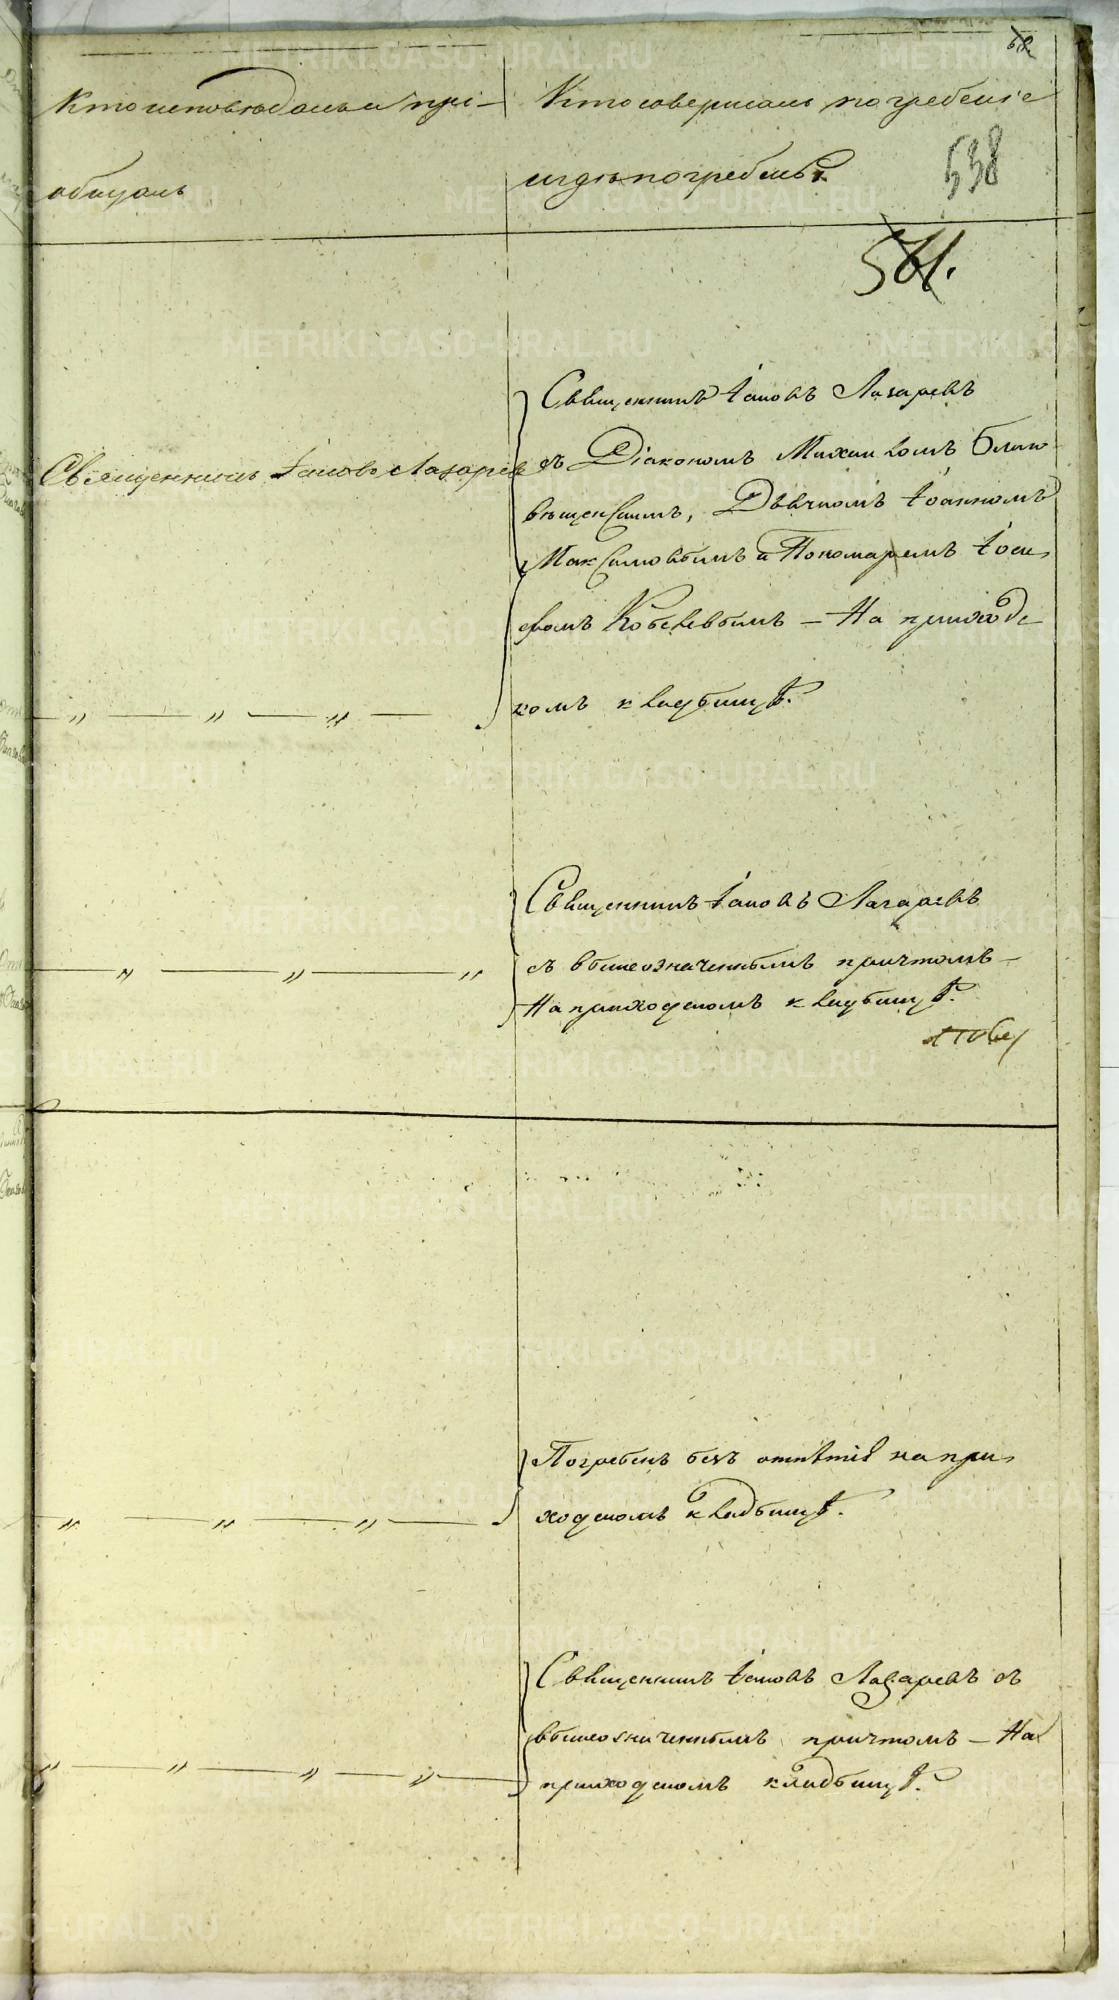 68.
Кто исповѣдалъ и прі-
общалъ
Кто совершалъ погребеніе
и гдѣ погребены.
538
561.
Священникъ Іаковъ Лазаревъ
Священникъ Іаковъ Лазаревъ
съ Діакономъ Михаиломъ Благо
вѣщенскимъ, Дьячкомъ Іоанномъ
Максимовымъ и Пономаремъ Іоси
фомъ Кобелевымъ – На приходс
комъ кладбищѣ.
— „ — „ — „ —
Священникъ Іаковъ Лазаревъ
съ вышеозначеннымъ причтомъ –
На приходскомъ кладбищѣ.
— „ — „ — „
Погребенъ безъ отпѣтія на при
ходскомъ кладбищѣ.
„ — „ — „ —
Священникъ Іаковъ Лазаревъ съ
вышеозначеннымъ причтомъ – На
приходскомъ кладбищѣ.
„ — „ — „ — „ —
METRIKI.GASO-URAL.RU